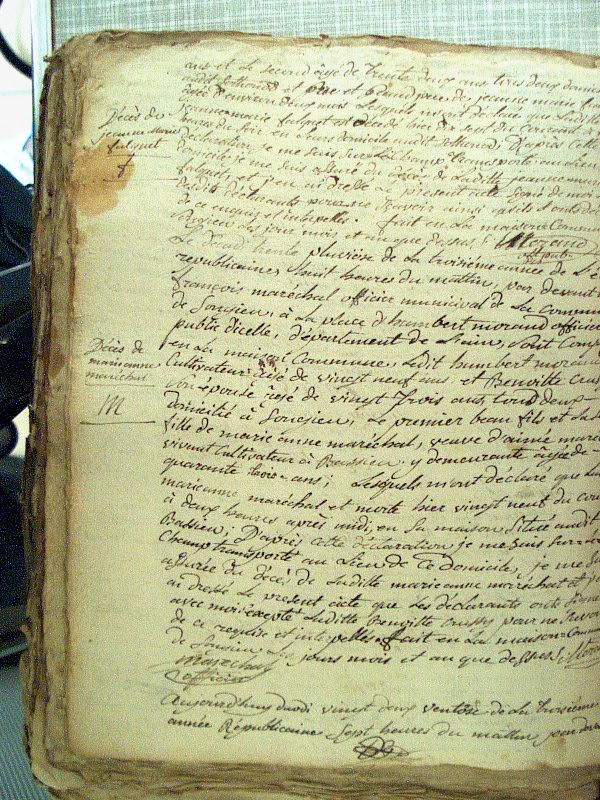 ans et Le second âgé de Trente deux ans tous deux domici
audit et pere et Grand pere de jeanne marie ful
agée d'environ deux mois Lesquels m'ont déclaré que Laditte
jeanne marie fulquet est décédé hier dix sept du Courant à
heures du soir en Leurs domicile audit D'après Cette
déclaration, je me suis sur Le Champ transporté au Lieu
domicile, je me suis assuré du décès de Laditte jeanne marie
fulquet, et j'en ai dressé Le présent acte signé de moi
desdits déclarants pour ne Savoir ainsi qu'ils l'ont déclaré
de ce enquis et interpellés. fait en La maison Commune
Les jour mois et an que dessus. Morand
off. public
Décès de
jeanne Marie
fulquet
Le trente pluviôse de La troisième année de L'è
republicaine, huit heures du mattin, par devant
françois maréchal officier municipal de La Commu
de Sonsieu, à La place d'humbert morand officier
public dicelle, département de Lain, sont Comp
en La maison Commune, Ledit humbert moran
Cultivateur âgé de vingt neuf ans et Benoitte Cru
son épouse agé de vingt Trois ans, tous deux
domicilié à Sonsieu, Le premier beau fils et La
fille de marie anne maréchal, veuve d'aimé maré
vivant Cultivateur à Bassieu y demeurante agée de
quarante trois ans; Lesquels m'ont déclaré que La
marieanne maréchal et morte hier vingt neuf du cou
à deux heures après midi, en Sa maison Situé audit
Bassieu; D'après cette déclaration je me suis sur Le
Champ transporté au Lieu de Ce domicile, je me Su
assurée du décès de Laditte marieanne maréchal et j'
ai dressé Le présent acte que Les déclarants ont Signé
avec moi excepté Laditte Benoitte crussy pour ne Savoir
de ce requise et interpellés. fait en La maison Commun
de Sonsieu Les jours mois et an que dessus.
Maréchal
officier
Décès de
marieanne
maréchal
M
Aujourd'huy duodi vingt deux ventose de La troisième
année Républicaine Sept heures du mattin, par devant